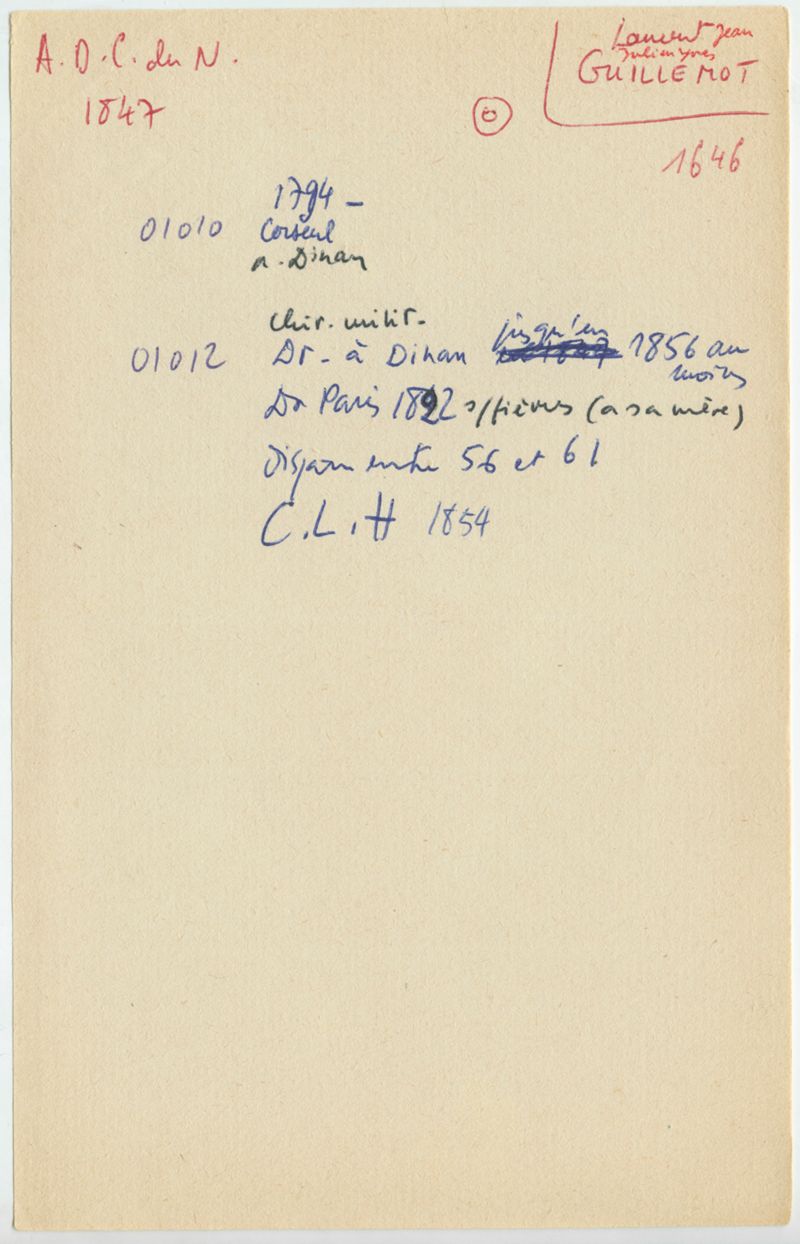 A.D.C. du N.
1847
Laurent Jean
Julien Yves
GUILLEMOT
1646
1794 -
01010 Corseul
a. Dinan
Chir. milit.
01012 Dr - à Dinan jusqu'en 1856 au
moins
Dr Paris 1822 s/fièvres (a sa mère)
Dispar entre 56 et 61
C.L.H 1854